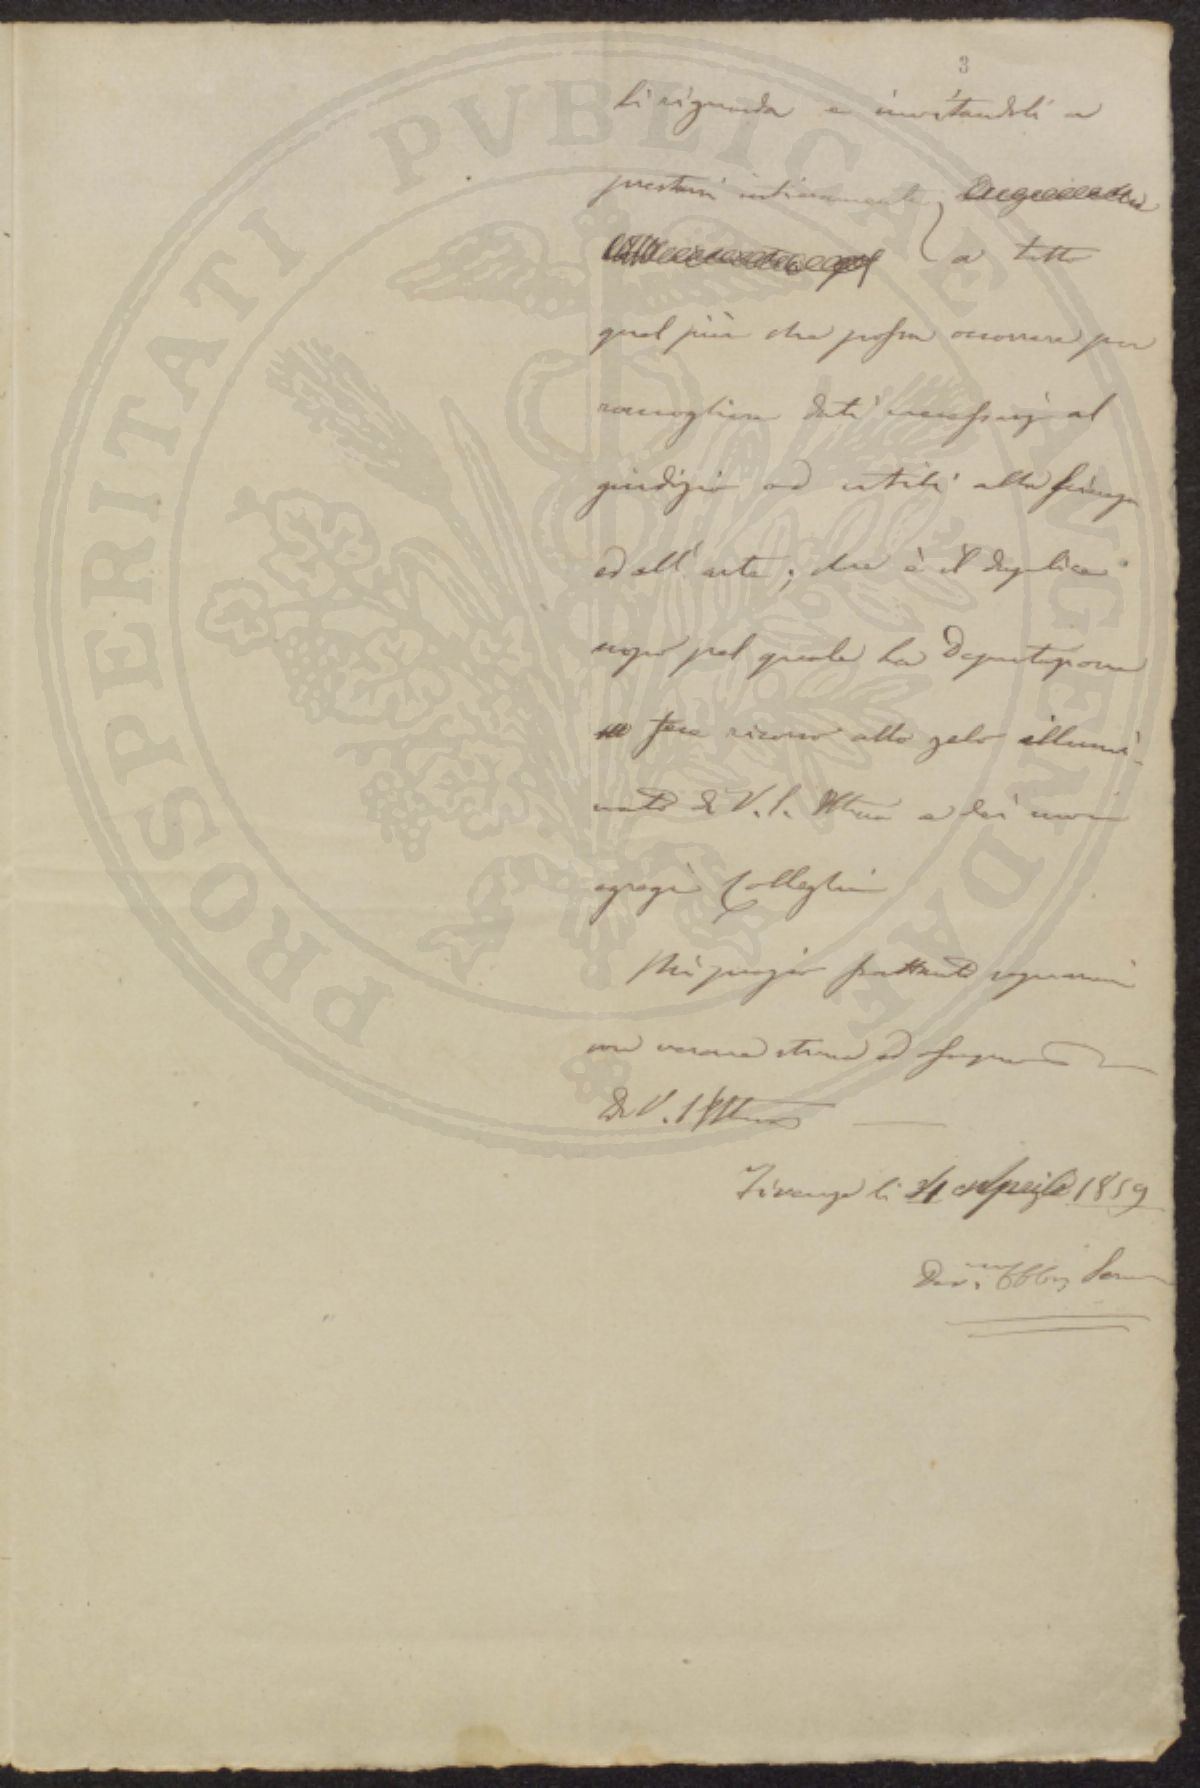 3
li riguarda e invitandoli a
prestarsi intieramente
a tutto
quel più che possa occorrere per
raccogliere dati necessarj al
giudizio ed utili alla scienza
ed all'arte; che è il duplice
scopo pel quale la Deputazione
fece ricorso allo zelo illumi-
nato di V. S. Illma e dei suoi
egregi Colleghi
Mi pregio frattanto segnarmi
con verace stima ed ossequio
Di V. S. Illma
Firenze li Aprile 1859
Dev. Obb. Serv
PROSPERITATI PVBLICAE AVGENDAE